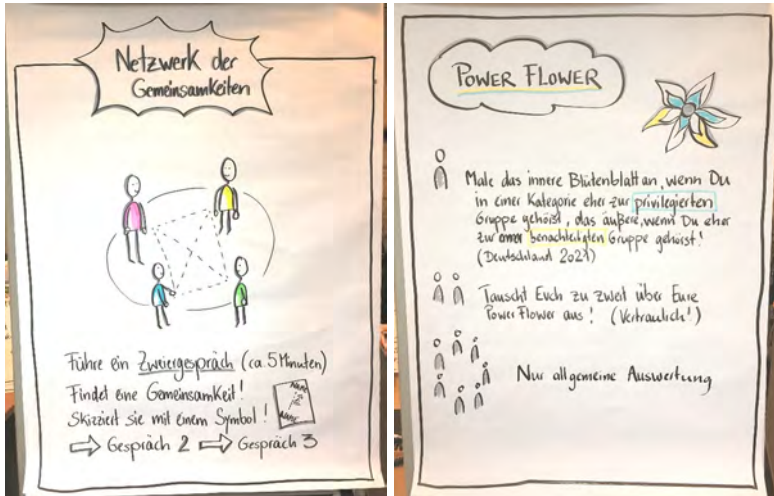 Netzwerk der
Gemeinsamkeiten
Führe ein Zweiergespräch (ca. 5 Minuten)
Findet eine Gemeinsamkeit!
Skizziert sie mit einem Symbol!
⇨ Gespräch 2 ⇨ Gespräch 3
POWER FLOWER
Male das innere Blütenblatt an, wenn Du
in einer Kategorie eher zur privilegierten
Gruppe gehörst, das äußere, wenn Du eher
zur benachteiligten Gruppe gehörst!
(Deutschland 2021)
Tauscht Euch zu zweit über Eure
Power Flower aus! (Vertraulich!)
Nur allgemeine Auswertung